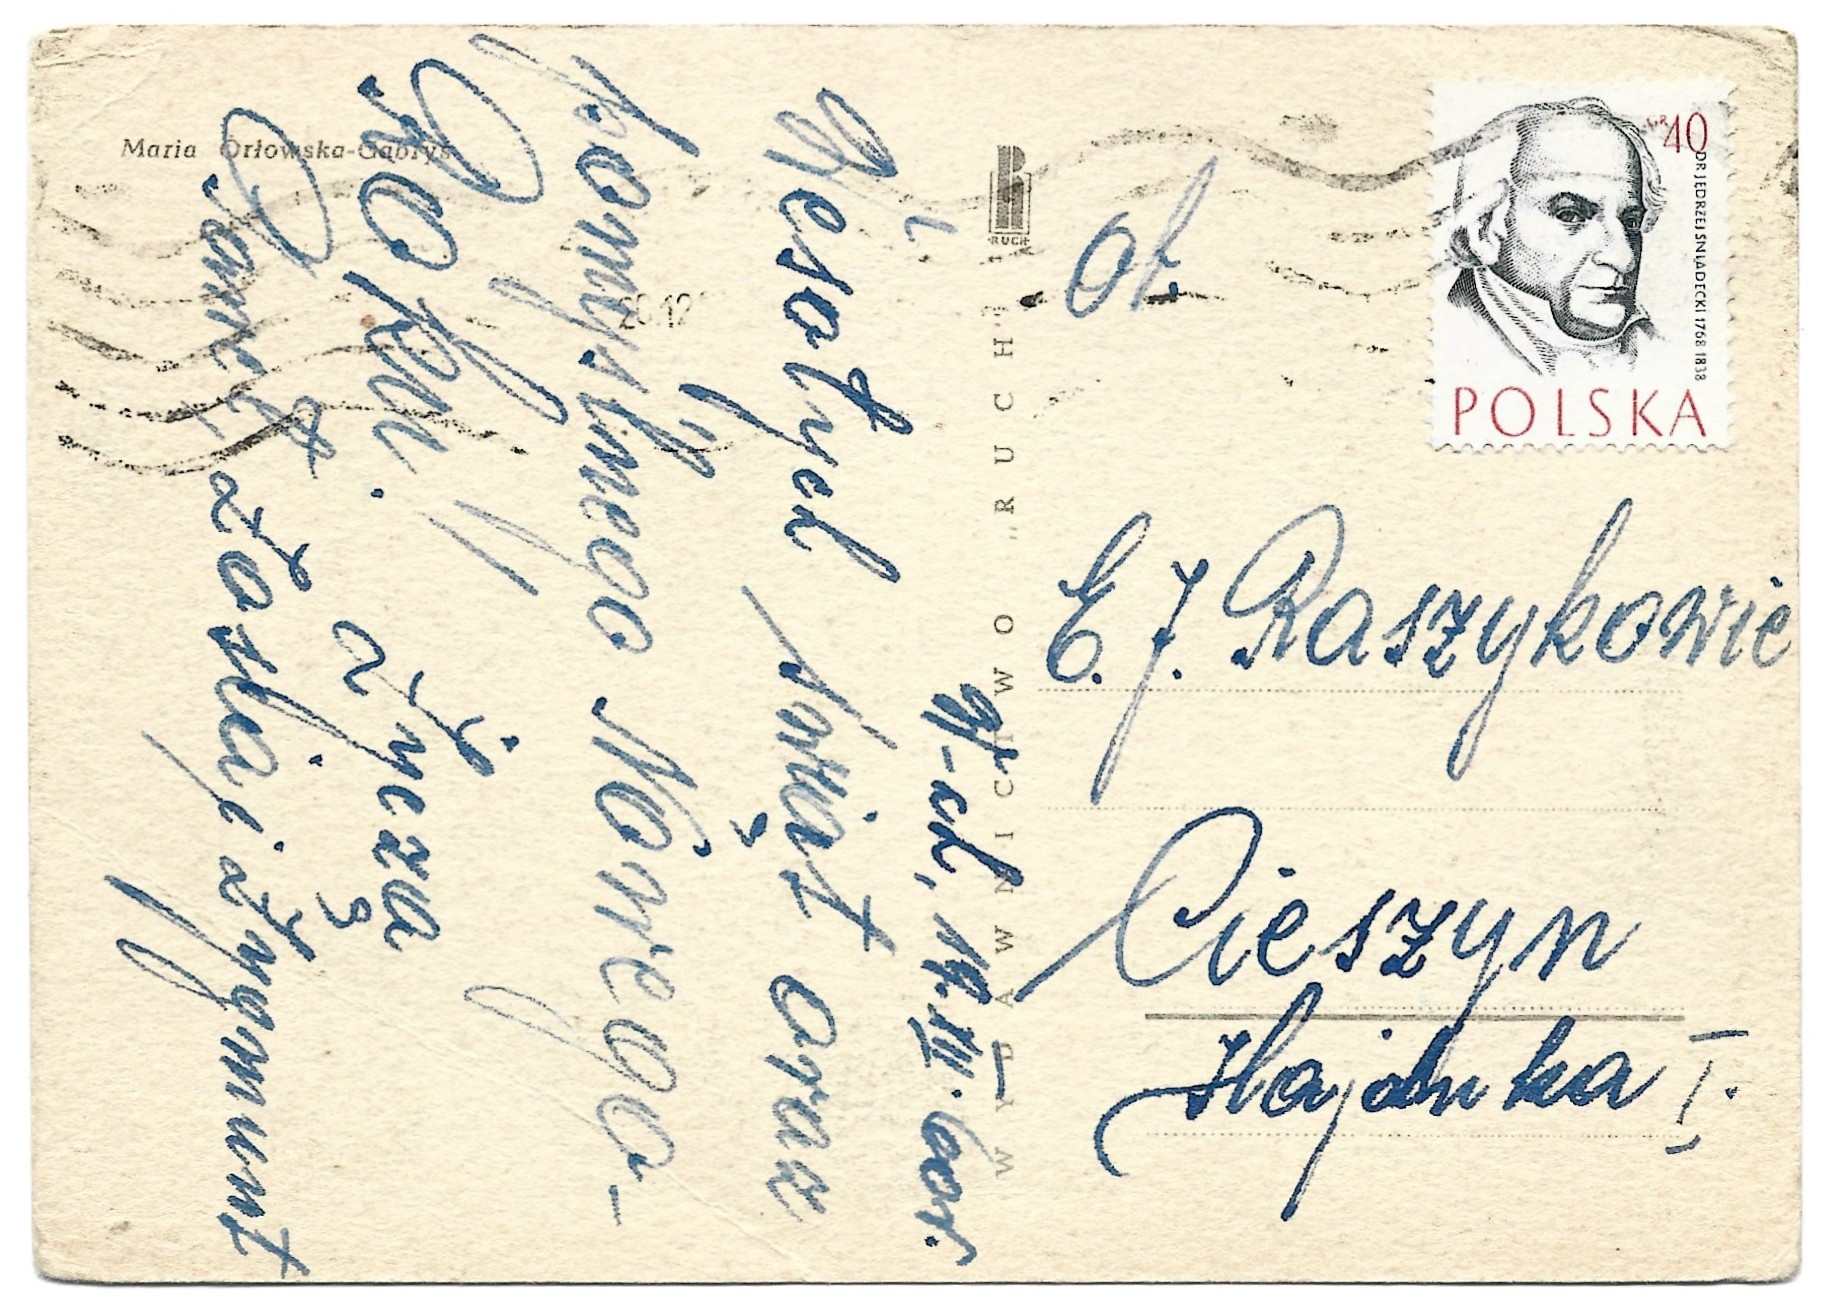 Maria Orłowska-Gabryś
WYDAWNICTWO „RUCH"
RUCH
20.12
40
DR JĘDRZEJ ŚNIADECKI 1768 1838
POLSKA
E. J. Raszykowie
Cieszyn
Hajduka 1.
K-ce, 19.XII. 60r.
Wesołych Świąt oraz
i
pomyślnego Nowego
Roku.
życzą
Zosia i Zygmunt